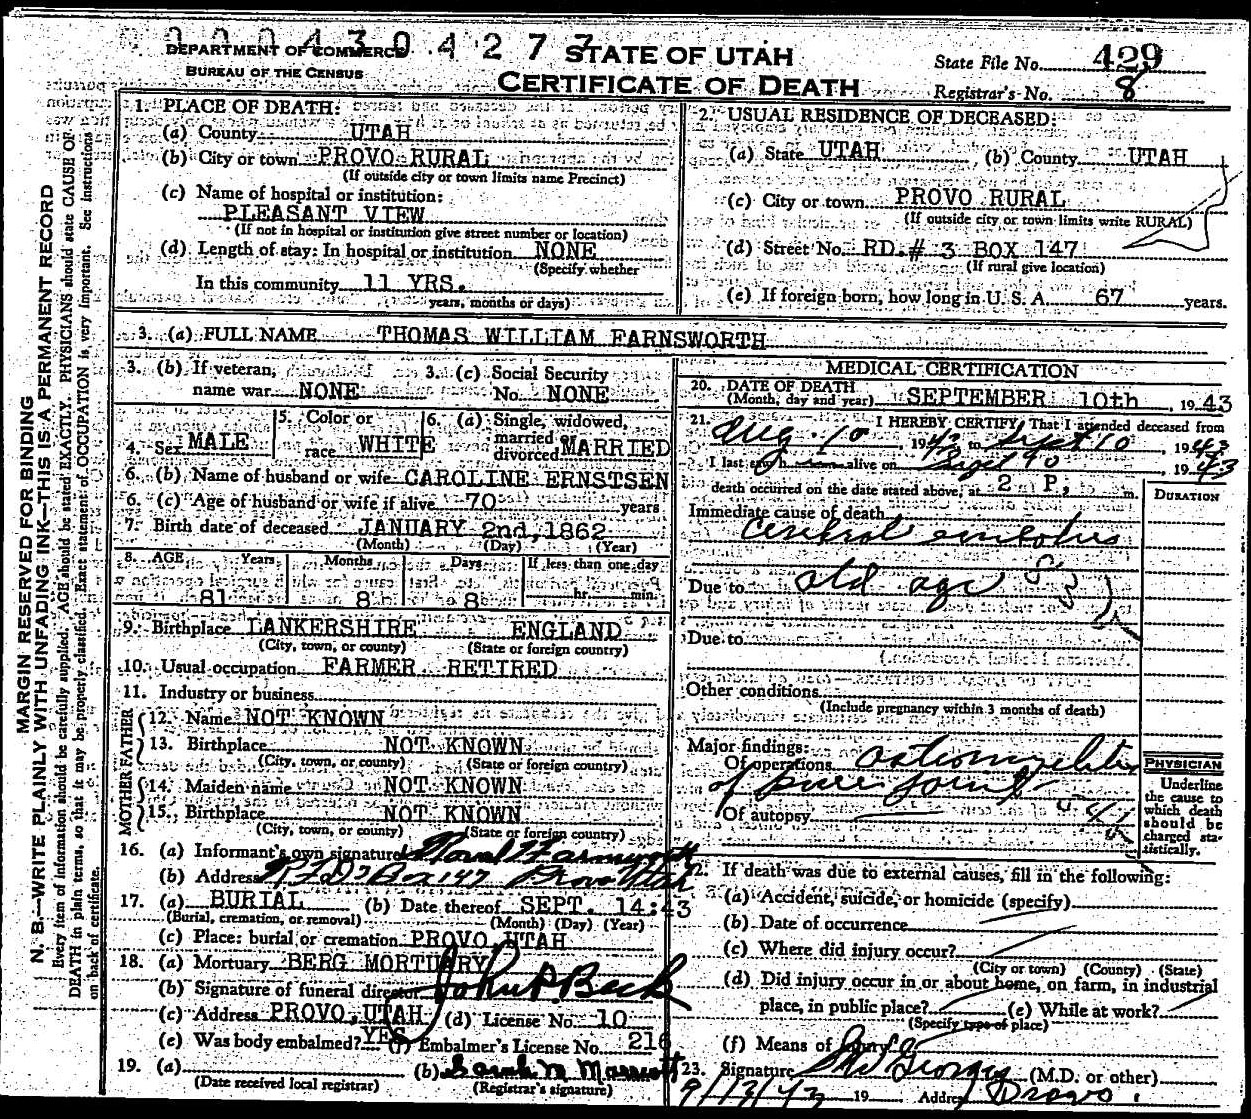 0 0 0 4 3 0 4 2 7 7
DEPARTMENT OF COMMERCE
BUREAU OF THE CENSUS
STATE OF UTAH
CERTIFICATE OF DEATH
State File No. 429
Registrar's No. 8
MARGIN RESERVED FOR BINDING
N. B.—WRITE PLAINLY WITH UNFADING INK—THIS IS A PERMANENT RECORD
Every item of information should be carefully supplied. AGE should be stated EXACTLY. PHYSICIANS should state CAUSE OF
DEATH in plain terms, so that it may be properly classified. Exact statement of OCCUPATION is very important. See Instructions
on back of certificate.
1. PLACE OF DEATH:
(a) County UTAH
(b) City or town PROVO RURAL
(If outside city or town limits name Precinct)
(c) Name of hospital or institution:
PLEASANT VIEW
(If not in hospital or institution give street number or location)
(d) Length of stay: In hospital or institution NONE
(Specify whether
In this community 11 YRS.
years, months or days)
2. USUAL RESIDENCE OF DECEASED:
(a) State UTAH (b) County UTAH
(c) City or town PROVO RURAL
(If outside city or town limits write RURAL)
(d) Street No. RD.# 3 BOX 147
(If rural give location)
(e) If foreign born, how long in U. S. A. 67 years.
3. (a) FULL NAME THOMAS WILLIAM FARNSWORTH
3. (b) If veteran, name war NONE
3. (c) Social Security No. NONE
4. Sex MALE
5. Color or race WHITE
6. (a) Single, widowed, married divorced MARRIED
6. (b) Name of husband or wife CAROLINE ERNSTSEN
6. (c) Age of husband or wife if alive 70 years
7. Birth date of deceased JANUARY 2nd, 1862
(Month) (Day) (Year)
8. AGE Years Months Days If less than one day
81 8 8 hr. min.
9. Birthplace LANKERSHIRE ENGLAND
(City, town, or county) (State or foreign country)
10. Usual occupation FARMER RETIRED
11. Industry or business
FATHER
12. Name NOT KNOWN
13. Birthplace NOT KNOWN
(City, town, or county) (State or foreign country)
MOTHER
14. Maiden name NOT KNOWN
15. Birthplace NOT KNOWN
(City, town, or county) (State or foreign country)
16. (a) Informant's own signature Farnsworth
(b) Address Box 147 Provo Utah
17. (a) BURIAL (b) Date thereof SEPT. 14:43
(Burial, cremation, or removal) (Month) (Day) (Year)
(c) Place: burial or cremation PROVO UTAH
18. (a) Mortuary BERG MORTUARY
(b) Signature of funeral director John P. Beck
(c) Address PROVO, UTAH (d) License No. 10
(e) Was body embalmed? YES (f) Embalmer's License No. 216
19. (a) (b) Sarah M Marriott
(Date received local registrar) (Registrar's signature)
MEDICAL CERTIFICATION
20. DATE OF DEATH
(Month, day and year) SEPTEMBER 10th, 1943
21. I HEREBY CERTIFY, That I attended deceased from
Aug. 10 1943 to Sept 10, 1943
I last saw him alive on Sept 10, 1943
death occurred on the date stated above, at 2 P, m.
DURATION
Immediate cause of death
Cerebral embolus
Due to old age
Due to
Other conditions
(Include pregnancy within 3 months of death)
Major findings:
Of operations osteomyelitis
of joint
Of autopsy
PHYSICIAN
Underline the cause to which death should be charged statistically.
22. If death was due to external causes, fill in the following:
(a) Accident, suicide, or homicide (specify)
(b) Date of occurrence
(c) Where did injury occur?
(City or town) (County) (State)
(d) Did injury occur in or about home, on farm, in industrial
place, in public place? (e) While at work?
(Specify type of place)
(f) Means of injury?
23. Signature Georges (M.D. or other)
9/13/43 19 Address Provo.